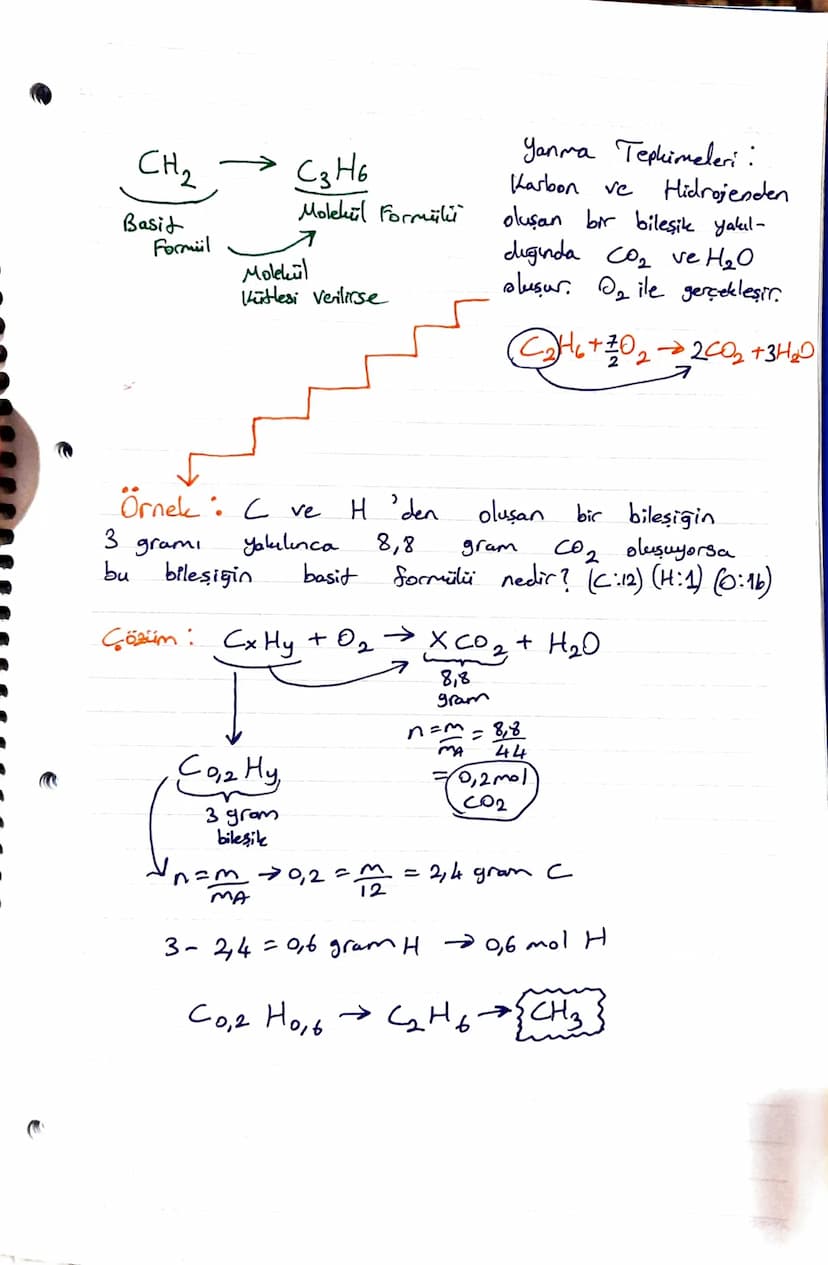 CH₂ → C₃H₆
Basit
Formül
Molekül Formülü
Molekül
Kütlesi Verilirse
Yanma Tepkimeleri :
Karbon ve Hidrojenden
oluşan bir bileşik yakıl-
dığında CO₂ ve H₂O
oluşur. O₂ ile gerçekleşir.
C₂H₆ + 7/2 O₂ → 2CO₂ + 3H₂O
Örnek : C ve H 'den oluşan bir bileşiğin
3 gramı yakılınca 8,8 gram CO₂ oluşuyorsa
bu bileşiğin basit formülü nedir? (C:12) (H:1) (O:16)
Çözüm : CxHy + O₂ → XCO₂ + H₂O
8,8
gram
n = m/MA = 8,8/44
= 0,2 mol
CO₂
C0,2 Hy
3 gram
bileşik
n = m/MA → 0,2 = m/12 = 2,4 gram C
3 - 2,4 = 0,6 gram H → 0,6 mol H
C0,2 H0,6 → C₂H₆ → CH₃